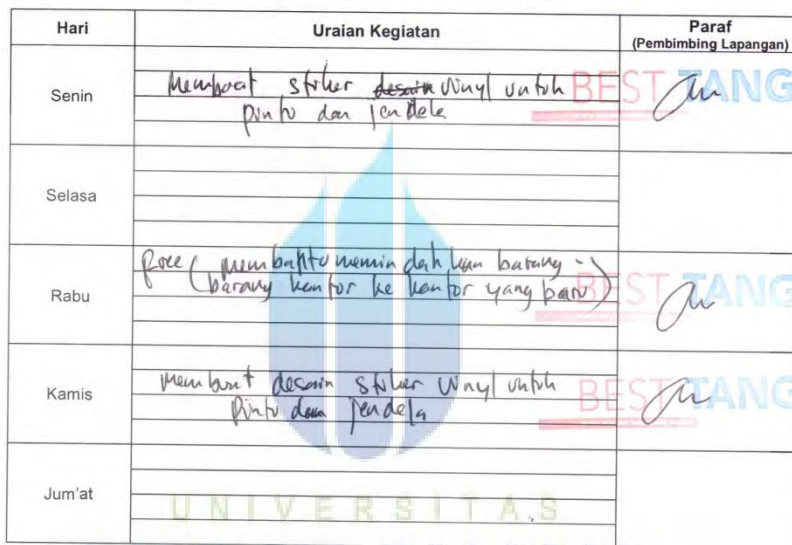 Hari Uraian Kegiatan Paraf
(Pembimbing Lapangan)
Senin
Membuat stiker desain Vinyl untuk
pintu dan jendela
BEST TANG
Selasa
Rabu
free (membantu memindahkan barang -
barang kantor ke kantor yang baru)
BEST TANG
Kamis
Membuat desain stiker Vinyl untuk
Pintu dan jendela
BEST TANG
Jum'at
UNIVERSITAS